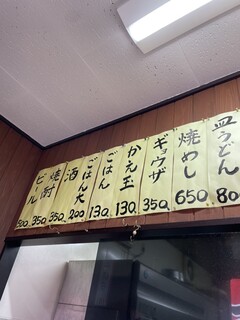 皿うどん 80
焼めし 650
ギョウザ 350
かえ玉 130
ごはん 130
ごはん大 200
酒 350
焼酎 350
ビール